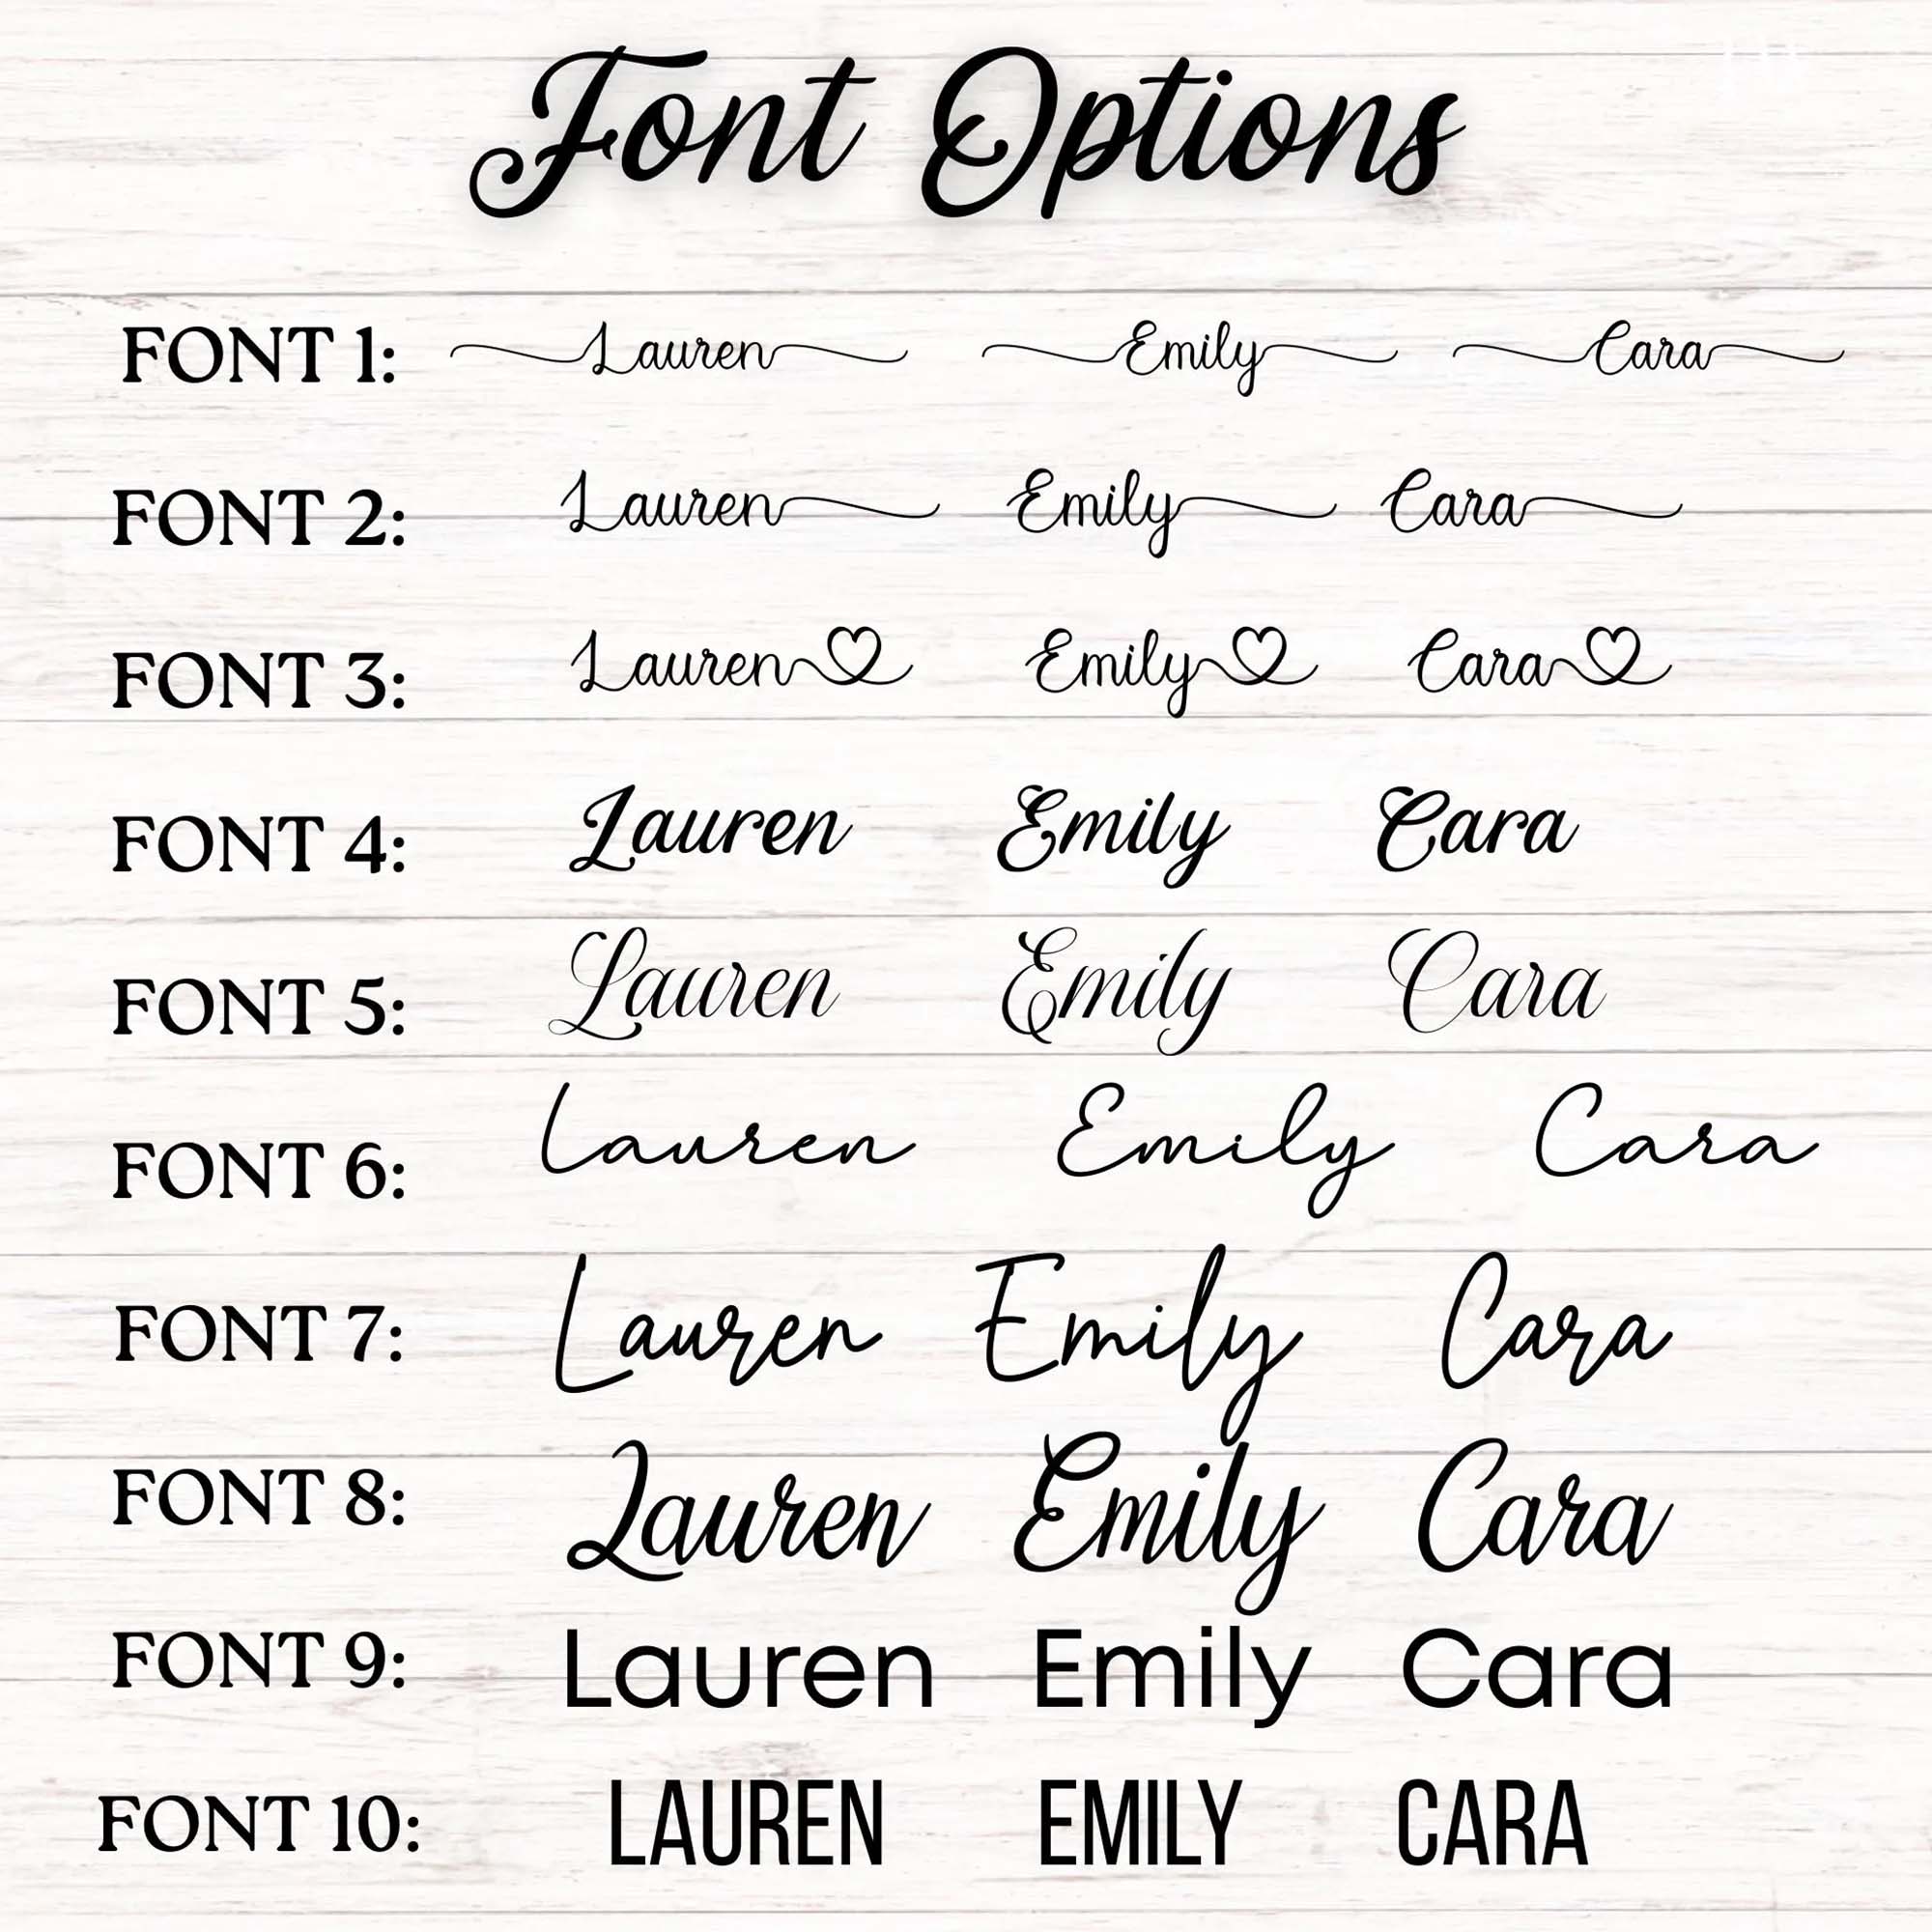 Font Options
FONT 1: Lauren Emily Cara
FONT 2: Lauren Emily Cara
FONT 3: Lauren Emily Cara
FONT 4: Lauren Emily Cara
FONT 5: Lauren Emily Cara
FONT 6: Lauren Emily Cara
FONT 7: Lauren Emily Cara
FONT 8: Lauren Emily Cara
FONT 9: Lauren Emily Cara
FONT 10: LAUREN EMILY CARA